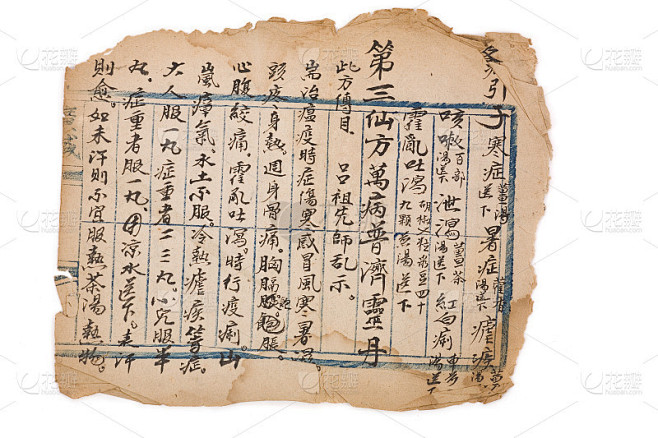 引子 寒症 薑湯送下 暑症 湯送下 瘧疾
咳嗽 百部湯送下 泄瀉 薑茶湯送下 紅白痢 湯送下
霍亂吐瀉 胡椒 菉豆四十九顆 湯送下
第三仙方萬病普濟靈丹
此方傳自 呂祖先師乩示。
耑治瘟疫時症傷寒感冒風寒暑濕。
頭疼身熱。週身骨痛。胸膈飽脹。
心腹絞痛。霍亂吐瀉。時行疫痢。山
嵐瘴氣。水土不服。冷熱瘧疾等症。
大人服一丸。症重者二三丸。小兒服半
丸。症重者服一丸。用凉水送下。汗
則愈。如未汗則不宜服熱茶湯熱物。
花瓣